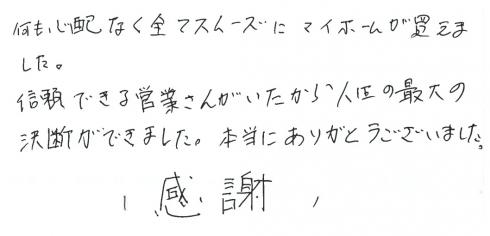 何も心配なく全てスムーズにマイホームが買えま
した。
信頼できる営業さんがいたから人生の最大の
決断ができました。本当にありがとうございました。
感謝